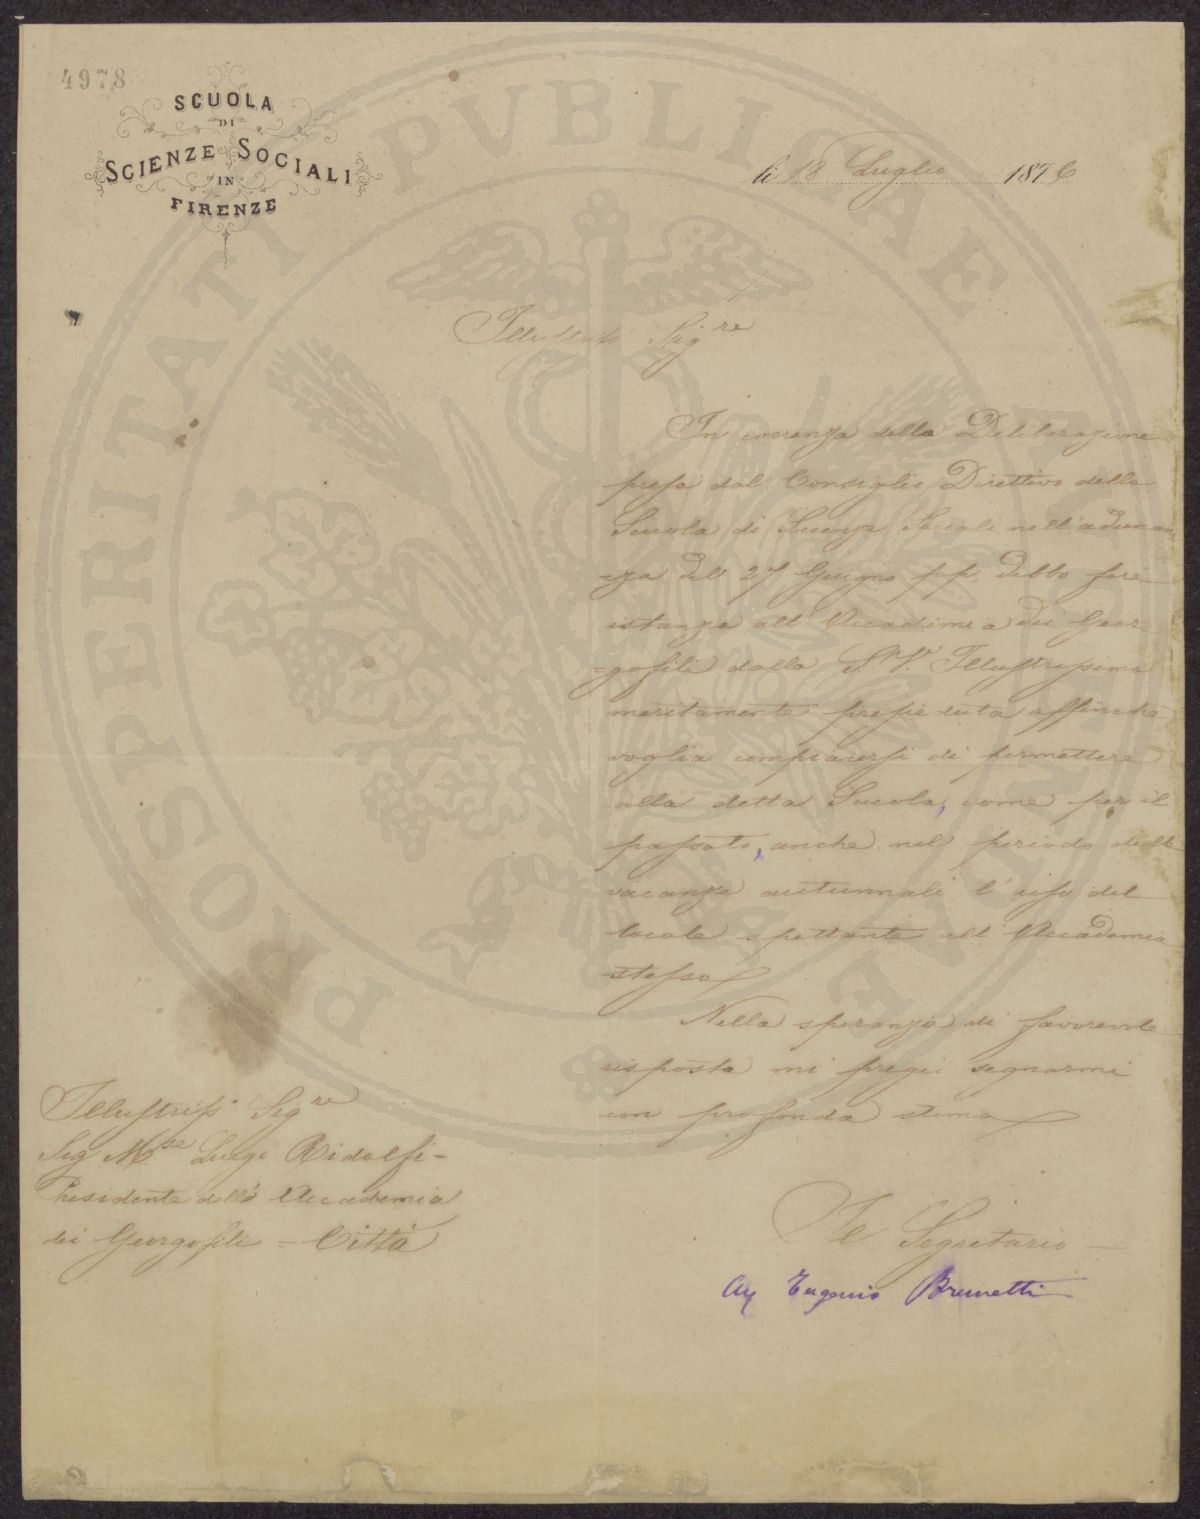 4978
SCUOLA
DI
SCIENZE SOCIALI
IN
FIRENZE
li 18 Luglio 1876
Illustriss Sigre
In coerenza della Deliberazione
presa dal Consiglio Direttivo della
Scuola di Scienze Sociali nell'adunan
=za del 27 Giugno pp. debbo fare
istanza all'Accademia dei Geor-
=gofili dalla S. V. Illustrissima
meritamente presieduta affinchè
voglia compiacersi di permettere
alla detta Scuola, come per il
passato, anche nel periodo delle
vacanze autunnali l'uso del
locale spettante all'Accademia
stessa
Nella speranza di favorevole
risposta mi pregio segnarmi
con profonda stima
Illustriss.o Sigre
Sig Mse Luigi Ridolfi-
Presidente dell'Accademia
dei Georgofili - Città
Il Segretario
Eugenio Brunetti
PROSPERITATI PVBLICAE